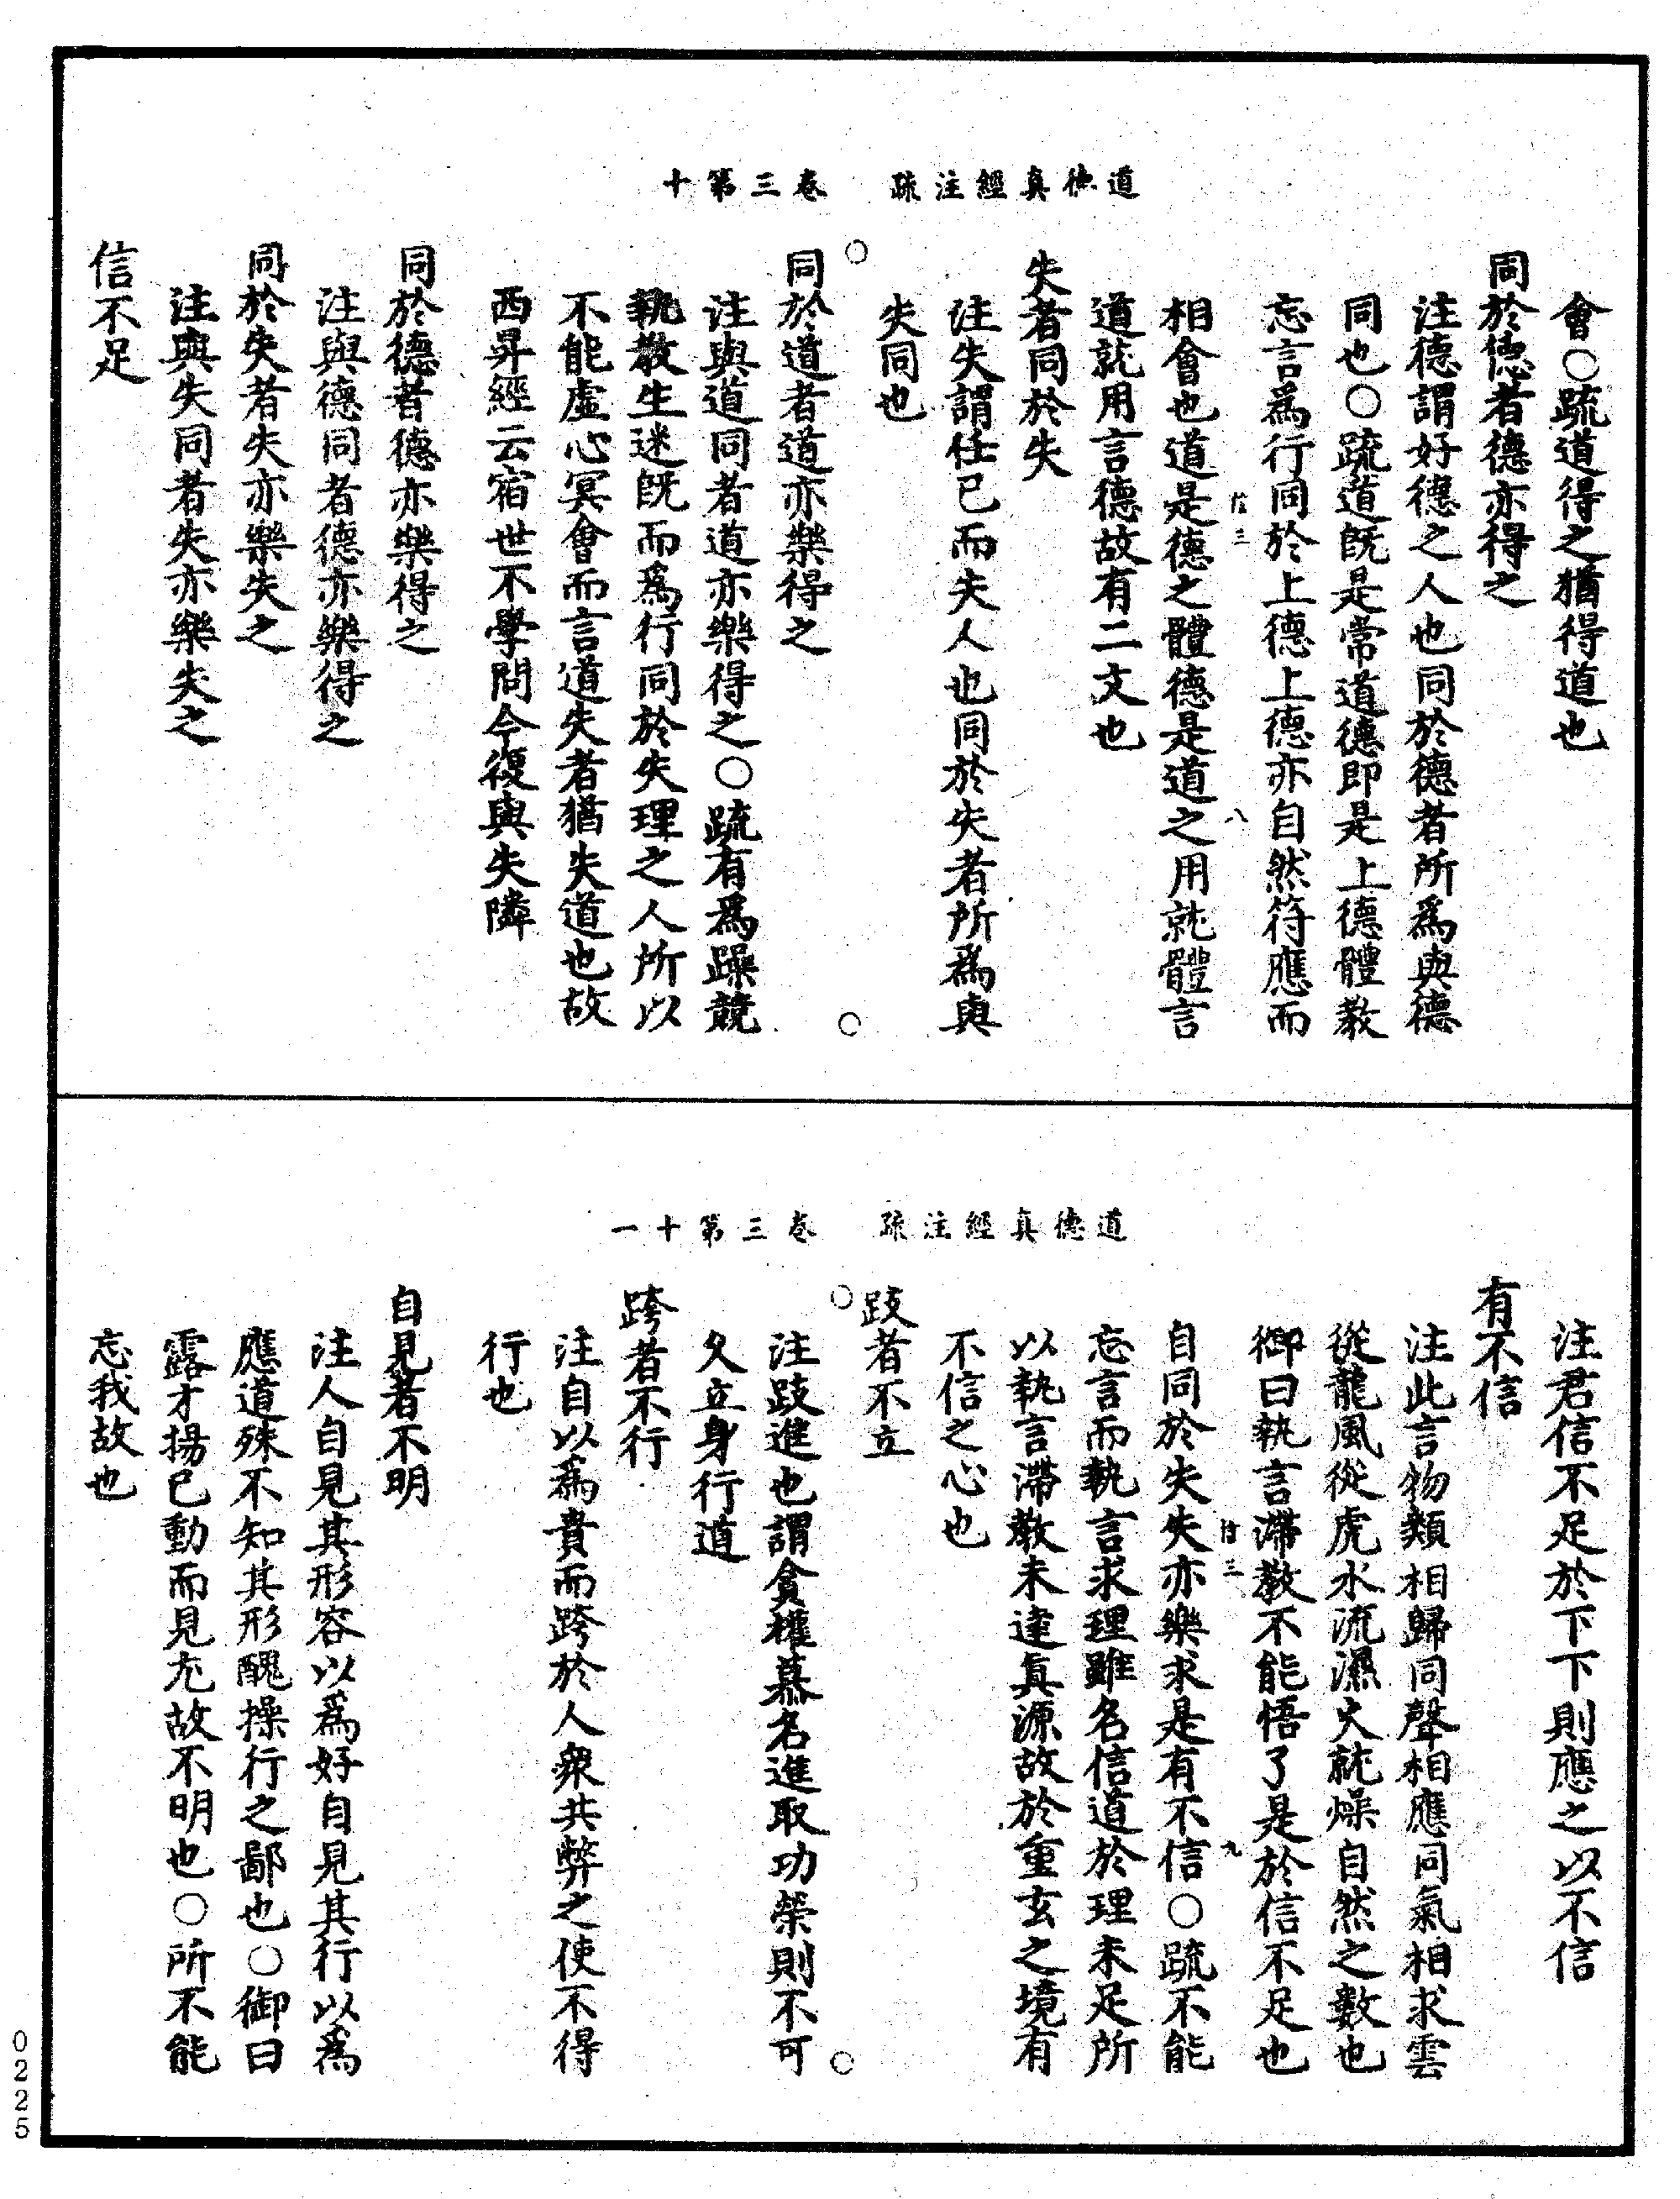 道德真經注疏　卷三第十
會○疏道得之猶得道也
同於德者德亦得之
注德謂好德之人也同於德者所爲與德
同也○疏道旣是常道德即是上德體教
忘言爲行同於上德上德亦自然符應而
三　八
相會也道是德之體德是道之用就體言
道就用言德故有二文也
失者同於失
注失謂任己而失人也同於失者所爲與
失同也
同於道者道亦樂得之
注與道同者道亦樂得之○疏有爲躁競
執教生迷旣而爲行同於失理之人所以
不能虛心冥會而言道失者猶失道也故
西昇經云宿世不學問今復與失隣
同於德者德亦樂得之
注與德同者德亦樂得之
同於失者失亦樂失之
注與失同者失亦樂失之
信不足
道德真經注疏　卷三第十一
注君信不足於下下則應之以不信
有不信
注此言物類相歸同聲相應同氣相求雲
從龍風從虎水流濕火就燥自然之數也
御曰執言滯教不能悟了是於信不足也
三　九
自同於失失亦樂求是有不信○疏不能
忘言而執言求理雖名信道於理未足所
以執言滯教未達真源故於重玄之境有
不信之心也
跂者不立
注跂進也謂貪權慕名進取功榮則不可
久立身行道
跨者不行
注自以爲貴而跨於人衆共弊之使不得
行也
自見者不明
注人自見其形容以爲好自見其行以爲
應道殊不知其形醜操行之鄙也○御曰
露才揚己動而見尤故不明也○所不能
忘我故也
0225